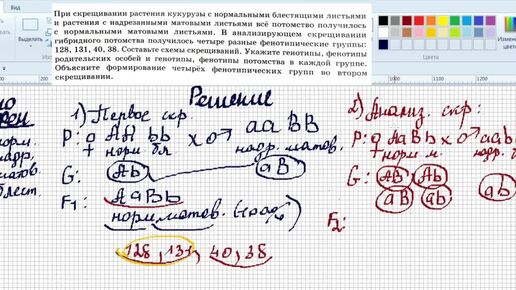 При скрещивании растения кукурузы с нормальными блестящими листьями
и растения с надрезанными матовыми листьями всё потомство получилось
с нормальными матовыми листьями. В анализирующем скрещивании
гибридного потомства получилось четыре разные фенотипические группы:
128, 131, 40, 38. Составьте схемы скрещиваний. Укажите генотипы, фенотипы
родительских особей и генотипы, фенотипы потомства в каждой группе.
Объясните формирование четырёх фенотипических групп во втором
скрещивании.
Решение
1) Первое скр.
P: ♀ AA bb x ♂ aa BB
норм. бл. надр. матов.
G: Ab aB
F1: AaBb
норм. матов. (100%)
128, 131, 40, 38
2) Анализ. скр:
P: ♀ AaBb x ♂ aabb
норм. м. надр.
G: AB Ab ab
aB ab
F2:
норм.
надр.
матов.
блест.